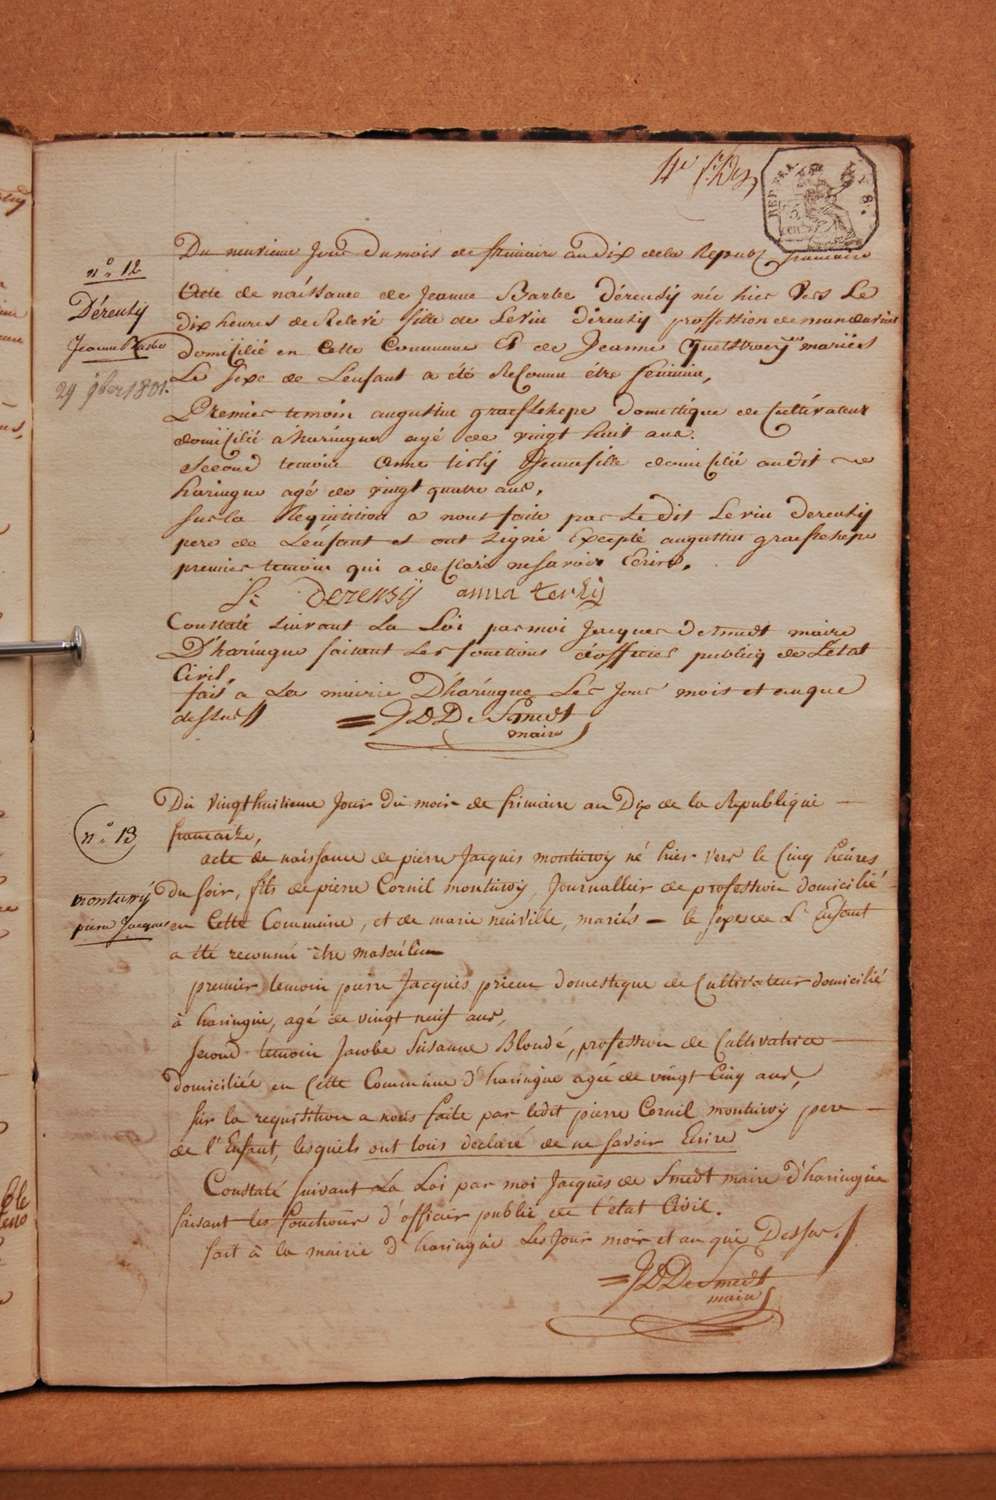 4e
REP. FRA
n.o 12
Dérensÿ
Jeanne Barbe
29 9bre 1801.
Du neuvieme Jour Du mois de frimaire an Dix de la Republ francaise
Acte de naissance de Jeanne Barbe Dérensÿ née hier Vers Le
dix heures de Relevé fille de Levin dérensÿ proffession de
domicilié en Cette Commune Et de Jeanne mariés
Le Sexe de Lenfant a été Reconnu etre féminin,
Premier temoin augustin graefschepe Domestique de Cultivateur
domicilié a haringue agé de vingt huit ans.
Second temoin Anne Jeune fille domicilié audit
haringue agé de vingt quatre ans,
sur la Requisition a nous faite par Le dit Levin derensÿ
pere de Lenfant et ont signé Excepté augustin graefschepe
premier temoin qui a declaré ne savoir Ecrire.
L: Derensÿ anna
Constaté suivant La Loi par moi Jacques desmedt maire
D'haringue faisant Les fonctions d'officier publiq de L'etat
Civil.
fait a La mairie D'haringue Les Jour mois et an que
dessus //
= JDDeSmedt
maire
n.o 13
montuwÿ
pierre Jacques
Du vingthuitieme Jour du mois de frimaire an Dix de la Republique —
francaise,
acte de naissance de pierre Jacques montuwÿ né hier vers le Cinq heures
du soir, fils de pierre Cornil montuwÿ, Journallier de profession domicilié
en Cette Commune, et de marie neuville, mariés — le sexe de L'Enfant
a été reconnu être masculin
premier temoin pierre Jacques prieur domestique de Cultivateur domicilié
à haringue, agé de vingt neuf ans,
second temoin Jacobe Susanne Blondé, profession de Cultivatrice —
domiciliée en Cette Commune d'haringue agée de vingt Cinq ans,
sur la requisition a nous faite par ledit pierre Cornil montuwÿ pere —
de l'Enfant, lesquels ont tous declaré de ne savoir Ecrire
Constaté suivant La Loi par moi Jacques de Smedt maire d'haringue
faisant les fonctions d'officier public de l'etat Civil.
fait à la mairie d'haringue Les Jour mois et an que Dessus. //
= JDDeSmedt
maire